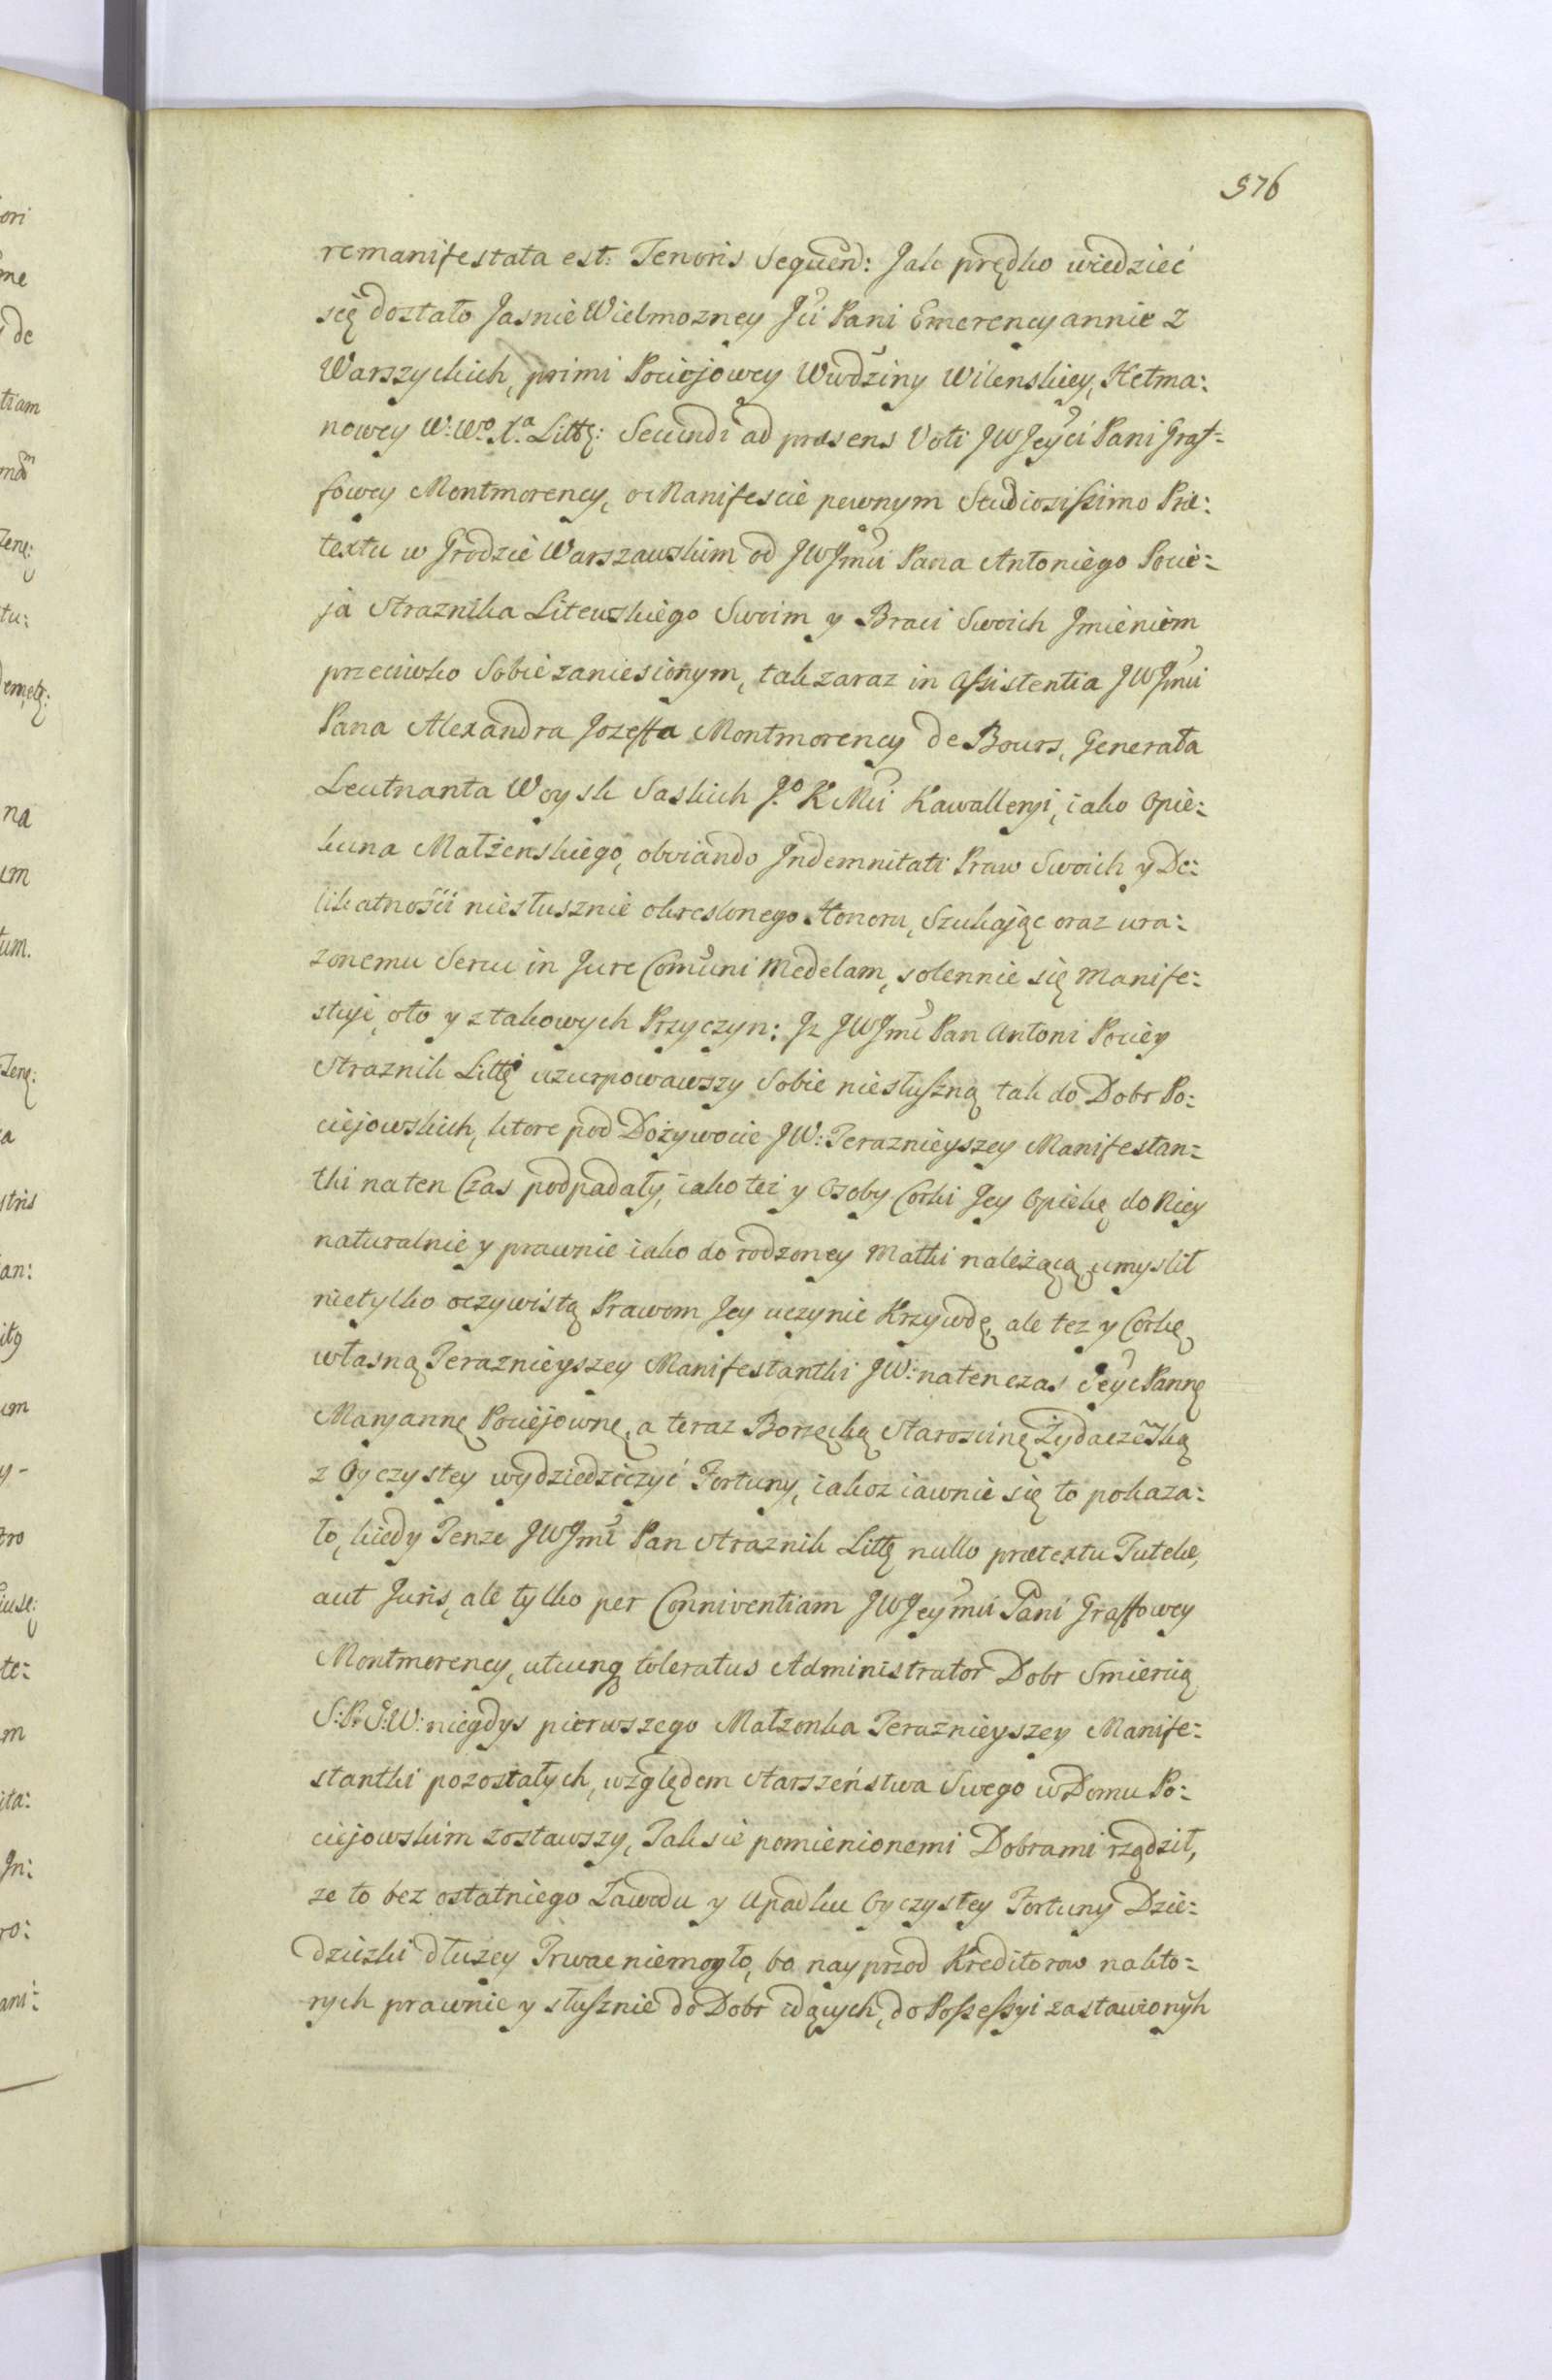 576
remanifestata est. Tenoris Sequen͞d: Jak prędko wiedzieć
się dostało Jasnie Wielmozney Jci Pani Emerencyannie z
Warszyckich, primi Pociejowey Wwdziny Wilenskiey, Hetma:
nowey W: Wo. Xa. Littę: Secundi ad præsens Voti JW Jeyci Pani Graf=
fowey Montmorency, o Manifescie pewnym Studiosissimo Præ:
textu w Grodzie Warszawskim od JWJmci Pana Antoniego Pocie=
ja Straznika Litewskiego Swoim y Braci Swoich Jmieniem
przeciwko Sobie zaniesionym, tak zaraz in Assistentia JWJmci
Pana Alexandra Jozeffa Montmorency de Bours, Generała
Leutnanta Woysk Saskich Jo K Mci Kawalleryi, iako Opie:
kuna Małżenskiego, obviando Jndemnitati Praw Swoich y De:
likatności niesłusznie okreslonego Honoru, Szukając oraz ura:
zonemu Sercu in Jure Com̃uni Medelam, solennie się Manife:
stuje, oto y z takowych Przyczyn: Jz JWJmć Pan Antoni Pociey
Straznik Littę uzurpowawszy Sobie niesłuszną tak do Dobr Po:
ciejowskich, ktore pod Dożywocie JW: Teraznieyszey Manifestan=
tki naten Czas podpadały, iako teź y Osoby Corki Jey Opiekę do Niey
naturalnie y prawnie iako do rodzoney Matki należącą umyslił
nietylko oczywistą Prawom Jey uczynic Krzywdę, ale tez y Corkę
własną Teraznieyszey Manifestantki JW: natenczas Jeyć Pannę
Maryannę Pociejownę, a teraz Borzęcką Staroscinę Żydacze͞ską
z Oyczystey wydziedziczyć Fortuny, iakoz iawnie się to pokaza:
ło, kiedy Tenze JWJmć Pan Straznik Littę nullo prætextu Tutelæ,
aut Juris, ale tylko per Conniventiam JWJeymci Pani Graffowey
Montmorency, utcunq toleratus Administrator Dobr Smiercią
S:P: J:W: niegdys pierwszego Małzonka Teraznieyszey Manife=
stantki pozostałych, względem starszeństwa Swego w Domu Po=
ciejowskim zostawszy, Tak sie pomienionemi Dobrami rządził,
ze to bez ostatniego Zawodu y Upadku Oyczystey Fortuny Dzie=
dziczki dłuzey Trwac niemogło, bo nayprzod Kreditorow nakto=
rych prawnie y słusznie do Dobr idących, do Possessyi zastawionych